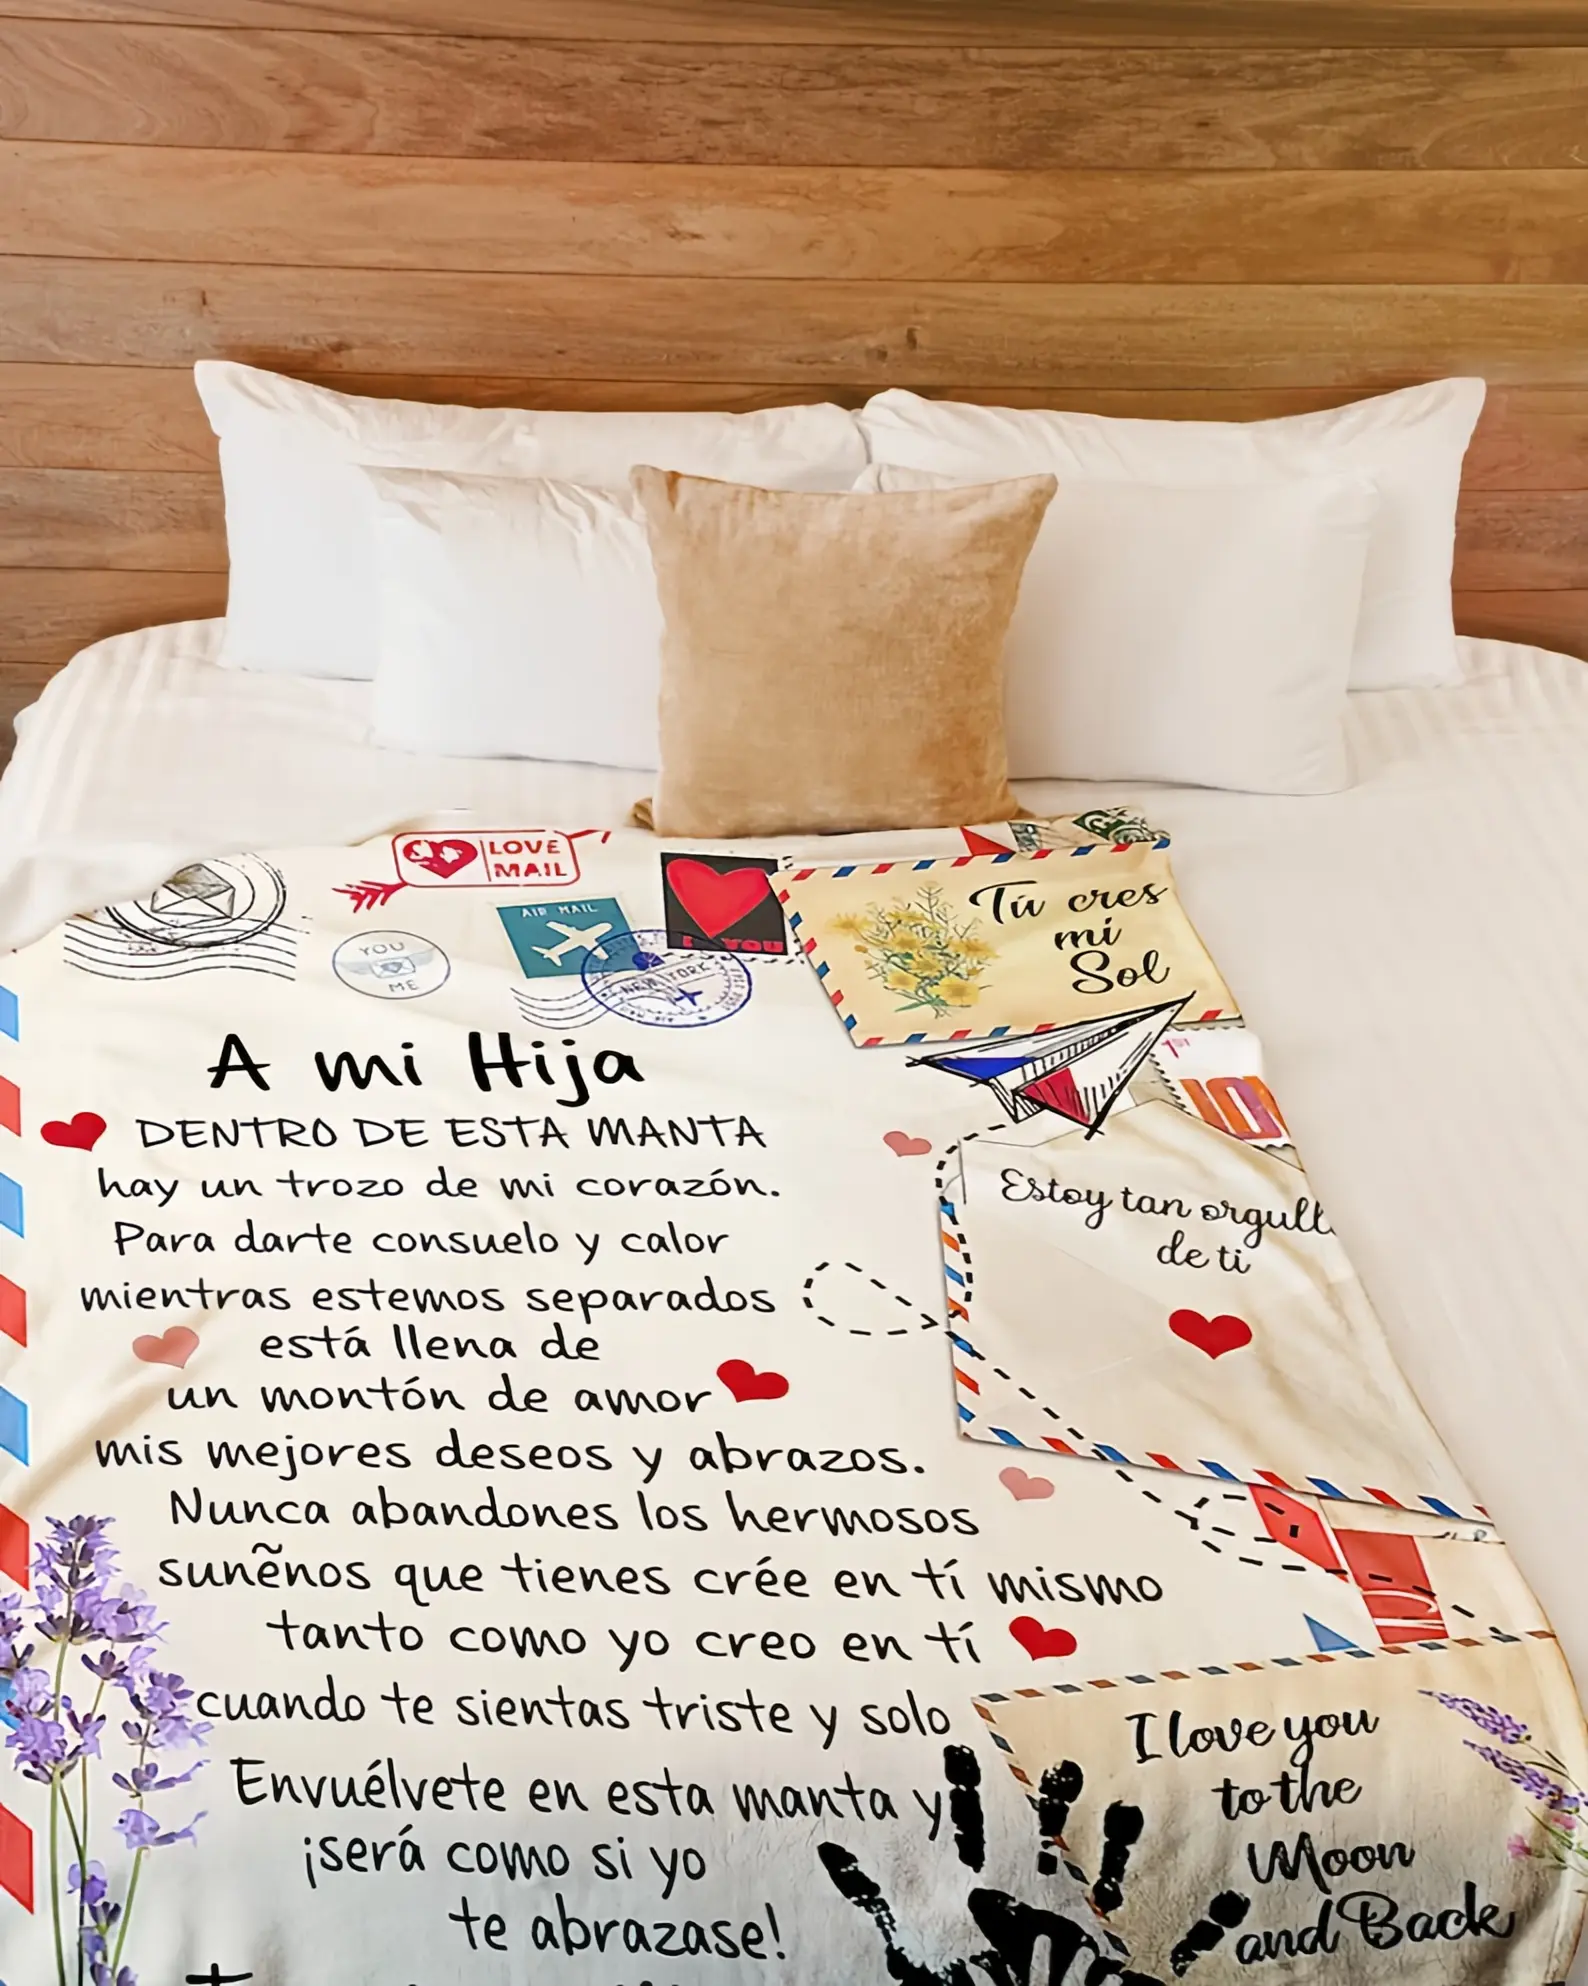 LOVE
MAIL
AIR MAIL
YOU
ME
NEW YORK
I YOU
Tú eres
mi
Sol
1ST
A mi Hija
DENTRO DE ESTA MANTA
hay un trozo de mi corazón.
Para darte consuelo y calor
mientras estemos separados
está llena de
un montón de amor
mis mejores deseos y abrazos.
Nunca abandones los hermosos
sunẽnos que tienes crée en tí mismo
tanto como yo creo en tí
cuando te sientas triste y solo
Envuélvete en esta manta y
¡será como si yo
te abrazase!
Estoy tan orgull
de ti
I love you
to the
Moon
and Back